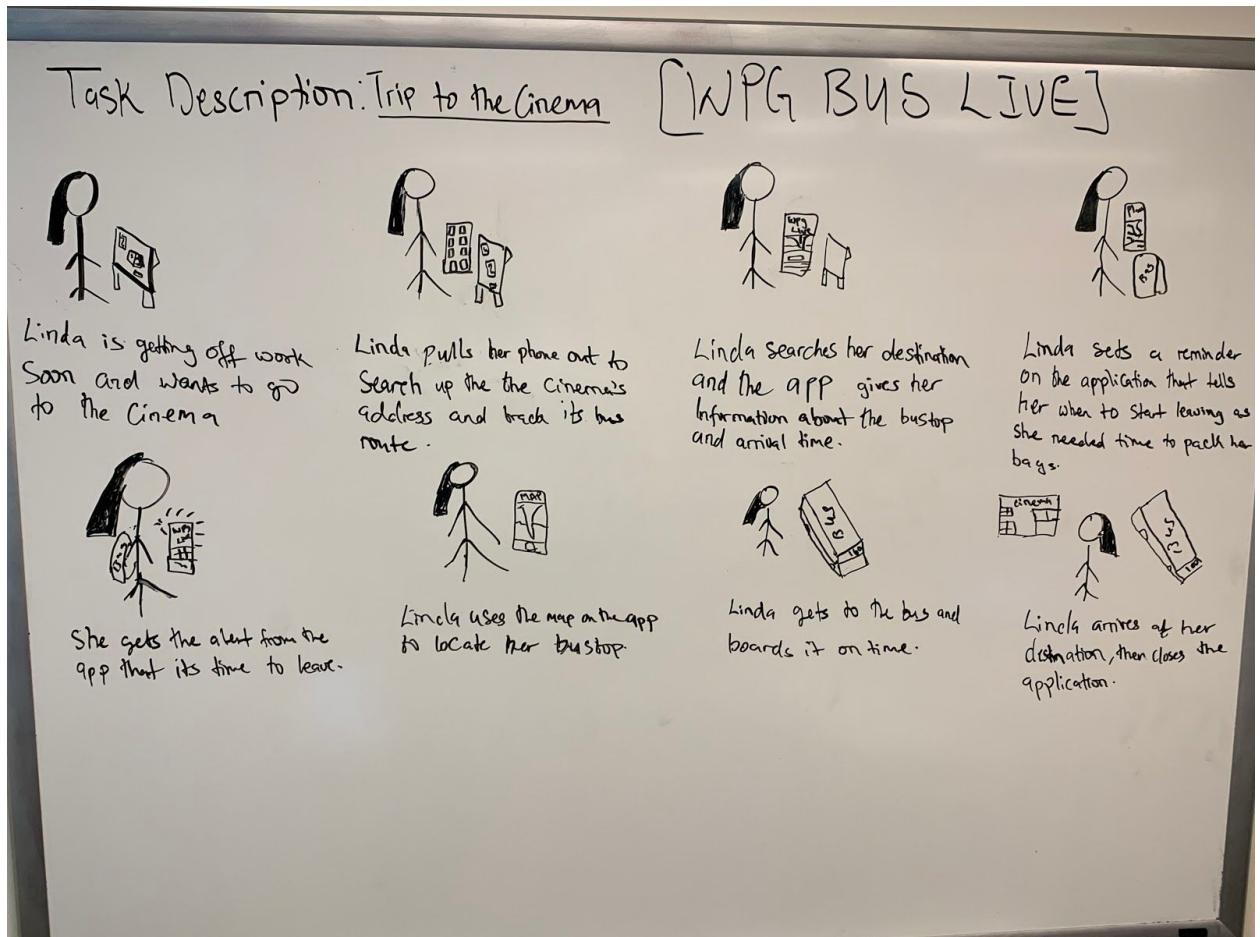 Task Description: Trip to the Cinema [WPG BUS LIVE]
Linda is getting off work
Soon and wants to go
to the Cinema
Linda pulls her phone out to
Search up the the Cinema's
address and track its bus
route.
WPG
Live
Linda searches her destination
and the app gives her
Information about the bustop
and arrival time.
Bag
Linda sets a reminder
on the application that tells
her when to start leaving as
she needed time to pack her
bags.
WPG
She gets the alert from the
app that its time to leave.
MAP
Linda uses the map on the app
to locate her bustop.
BUS
Linda gets to the bus and
boards it on time.
Cinema
BUS
Linda arrives at her
distination, then closes the
application.